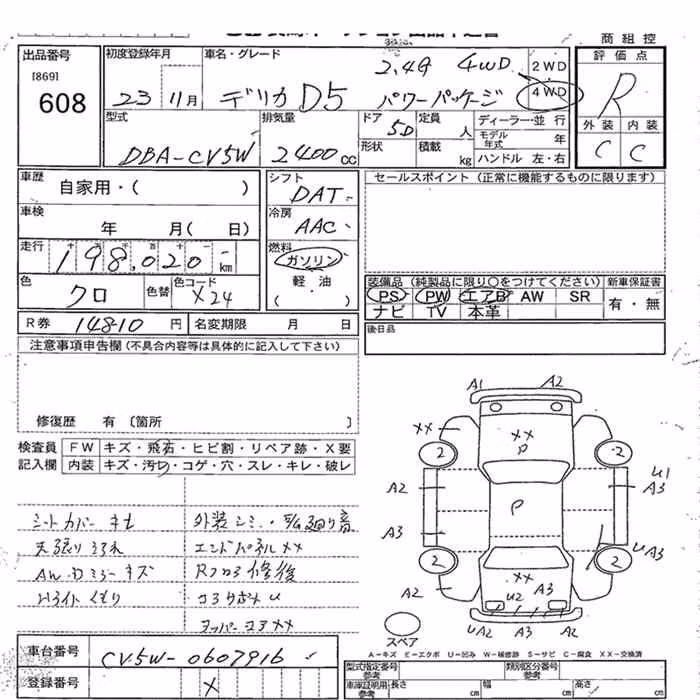 商組控
出品番号
[869]
608
初度登録年月
23 11月
車名・グレード
2,4G 4WD
デリカ D5 パワーパッケージ
2WD
4WD
評価点
R
外装 内装
C C
型式
DBA-CV5W
排気量
2400cc
ドア
5D
定員
人
形状
積載
kg
ディーラー・並行
モデル年式 年
ハンドル 左・右
車歴
自家用・( )
車検
年 月( 日)
走行
198,020 km
色
クロ
色替
色コード
X24
シフト
DAT
冷房
AAC
燃料
ガソリン
軽油
( )
セールスポイント (正常に機能するものに限ります)
装備品 (純製品に限り○をつけてください)
新車保証書
PS PW エアB AW SR
ナビ TV 本革
有・無
R券 14810 円
名変期限 月 日
後日品
注意事項申告欄 (不具合内容等は具体的に記入して下さい)
修復歴 有 〔箇所 〕
検査員
記入欄
FW キズ・飛石・ヒビ割・リペア跡・X要
内装 キズ・汚れ・コゲ・穴・スレ・キレ・破レ
シートカバー キセ
天張り
AW・Dミラー キズ
Hライト くもり
エンドパネル XX
修後
コアサポメ U
アッパー コア XX
A1 A2
XX
XX
P
2 2
U1
A2 A3
P
A3
U A3
2 2
A2
XX
U2 A3
UA2 A3 A3 U
スペア
A-キズ E-エクボ U-凹み W-補修跡 S-サビ C-腐食 XX-交換済
車台番号
CV5W-0607916
登録番号
X
型式指定番号
参考
類別区分番号
参考
車庫証明用
参考
長さ cm
幅 cm
高さ cm